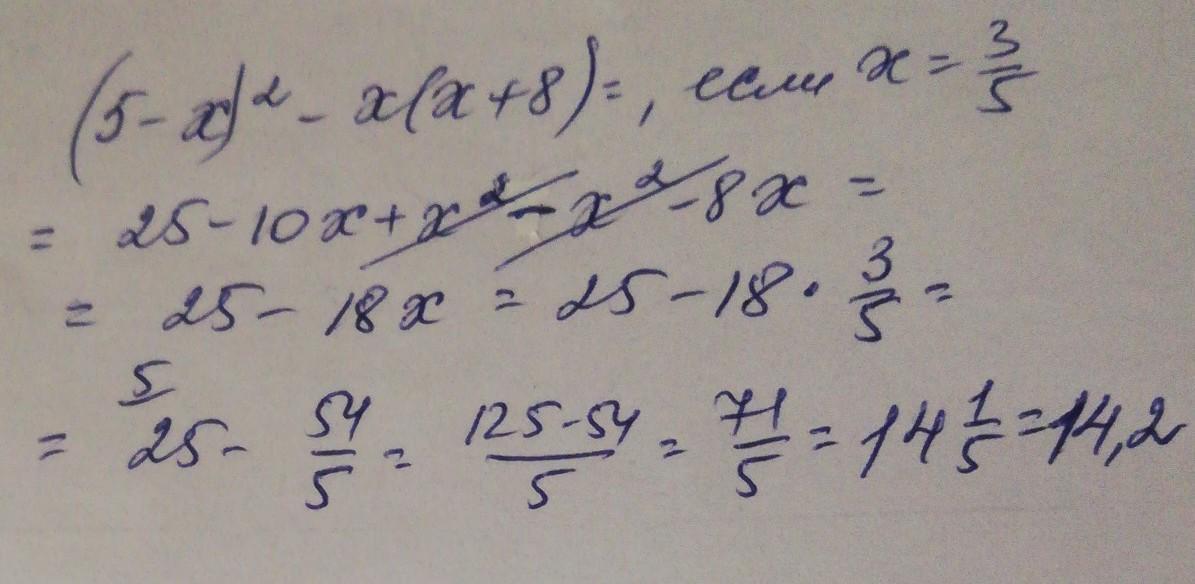 (5-x)² - x(x+8)=, если x = 3/5
= 25-10x+x²-x²-8x =
= 25-18x = 25-18·3/5 =
= 25 5/ - 54/5 = 125-54/5 = 71/5 = 14 1/5 = 14,2